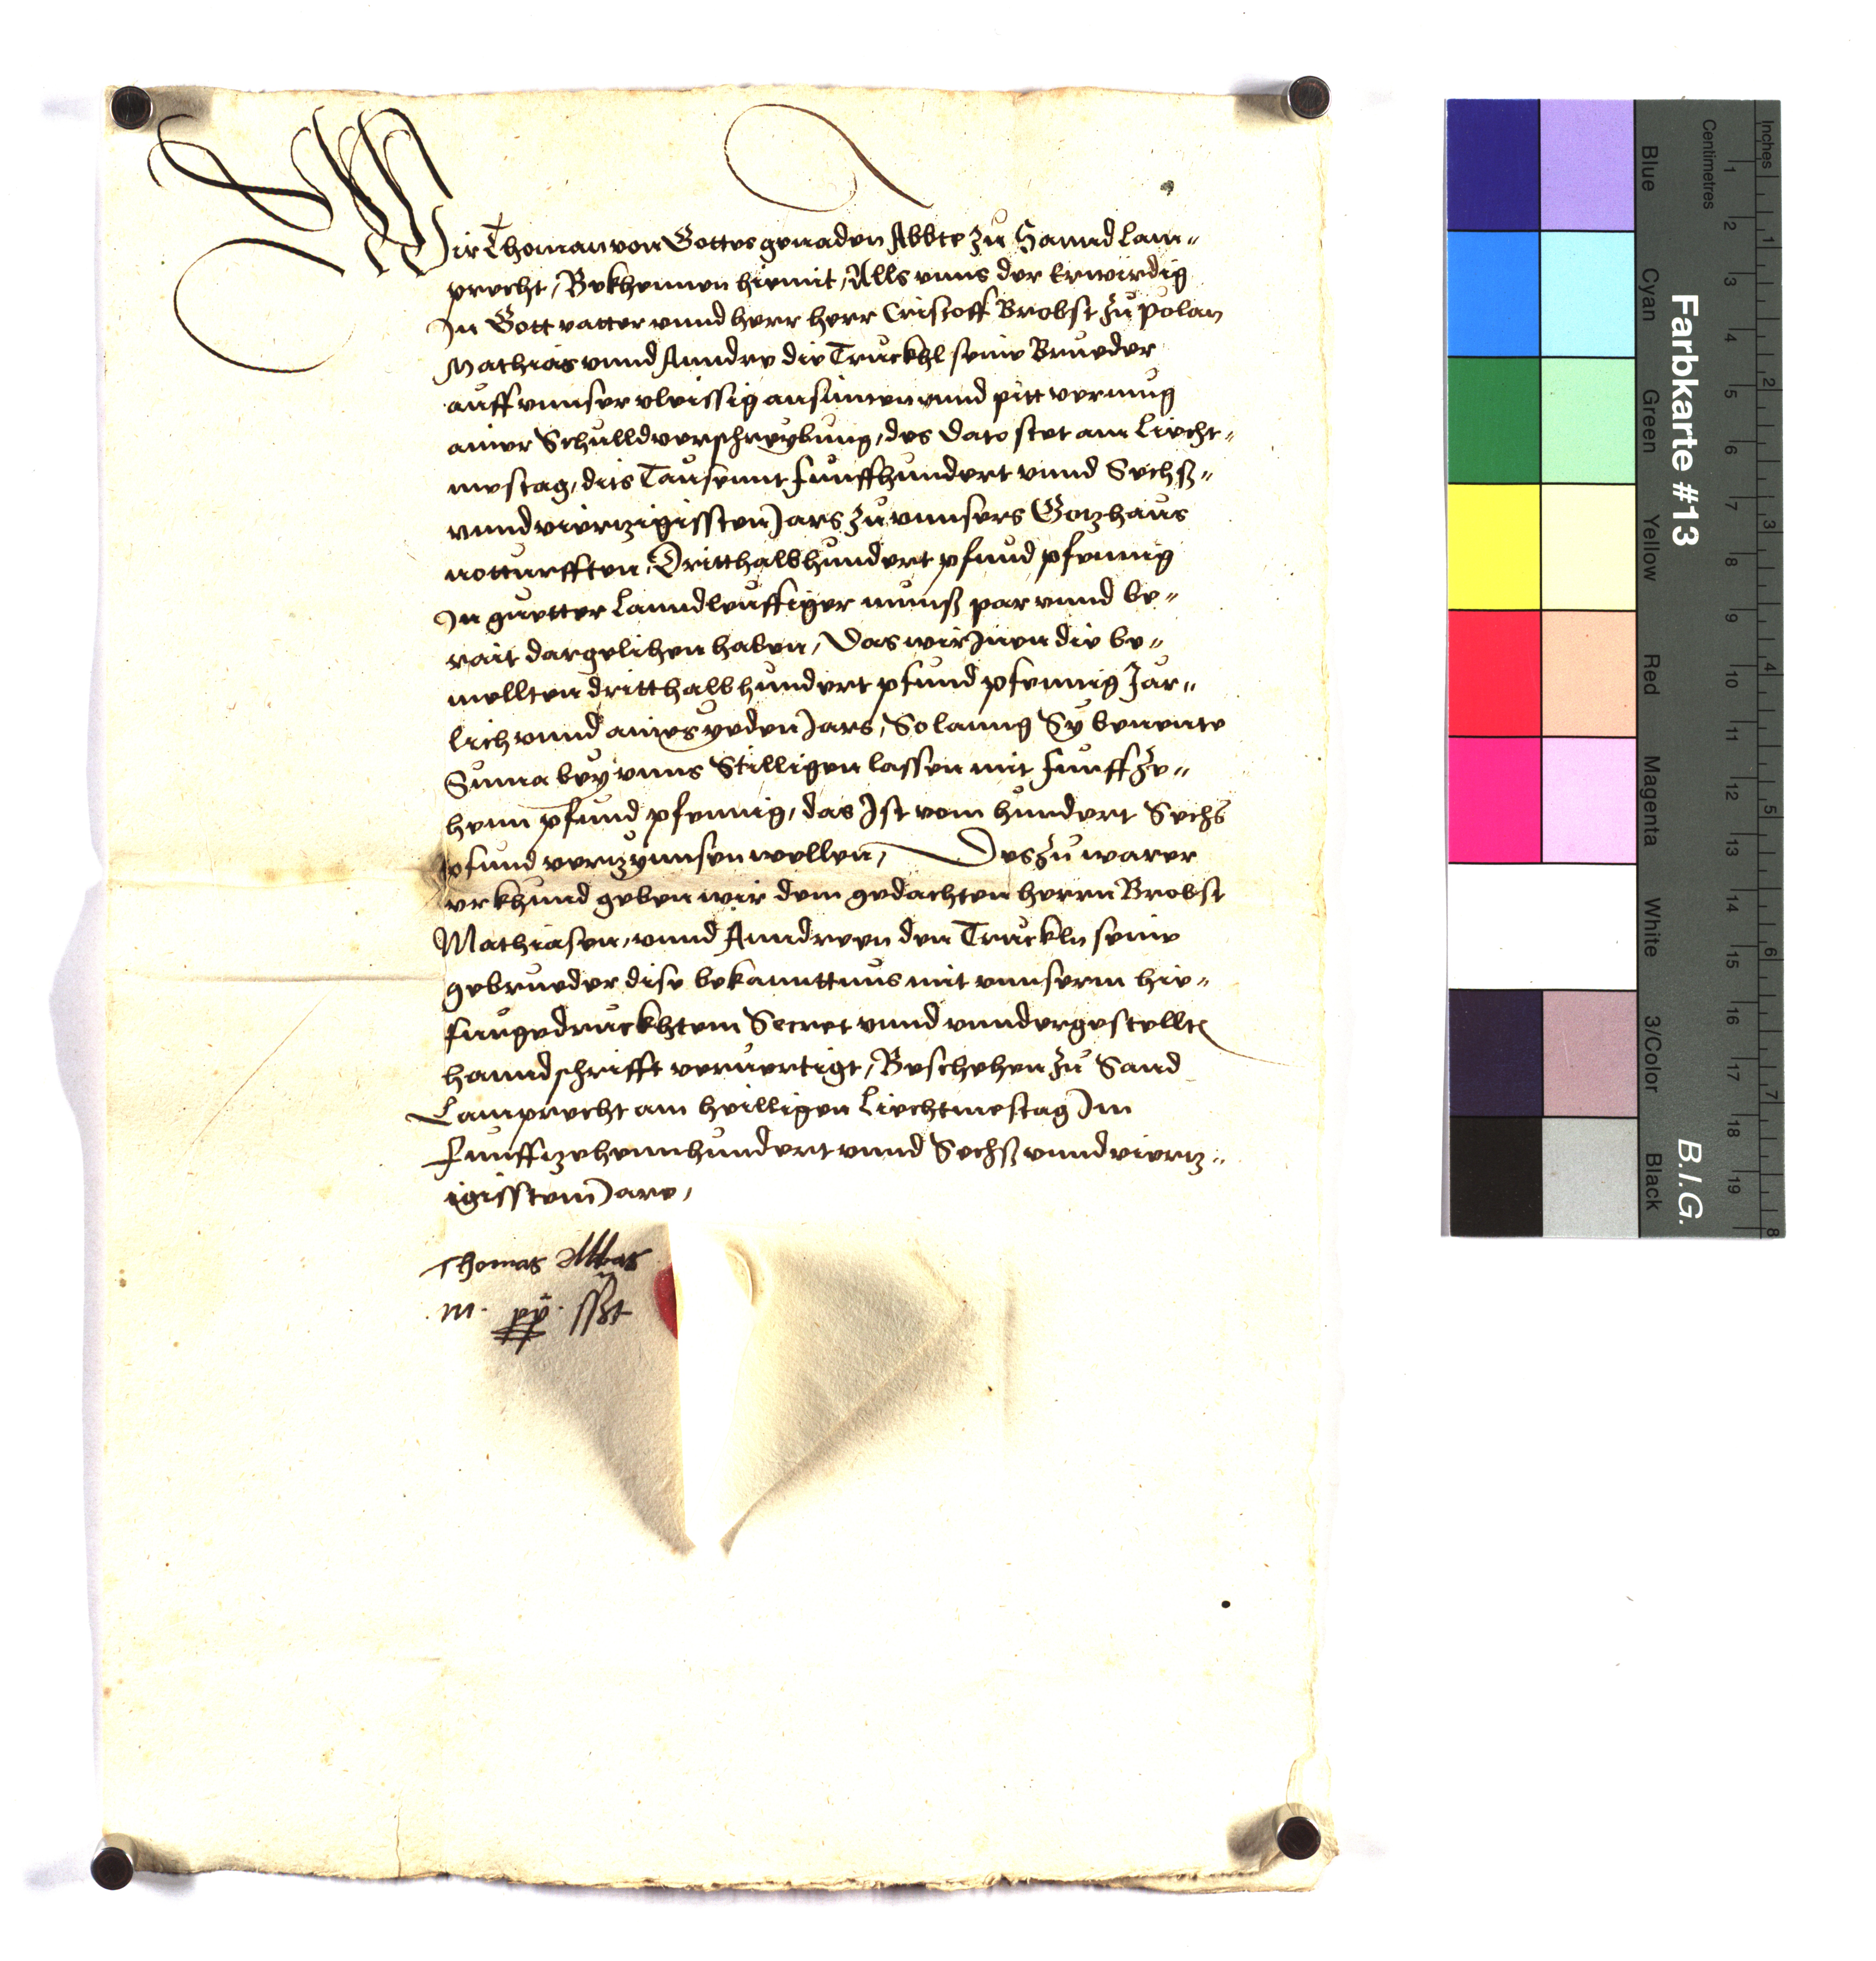 Wir Thoman von Gottes genaden Abbte zu Sannd Lam=
precht, Bekhennen hiemit, Alls vnns der Erwirdig
In Gott vatter vnnd herr herr Cristoff Brobst zu Polan
Mathias vnnd Anndre die Truckhl seine Brueder
auff vnnser vleissig ansinnen vnnd pitt vermug
ainer Schulldverschreybung, des dato stet am Liecht=
mestag, dits Tausennt funffhundert vnnd Sechß=
vnndviertzigissten Jars zu vnnsers Gotzhaus
notturfften, Dritthalbhundert pfund pfennig
In guetter Lanndleuffiger munß par vnnd be=
rait dargelihen haben, Das wir Inen die be=
mellten dritthalbhundert pfund pfennig Jar=
lich vnnd aines yeden Jars, So lanng Sy benente
Suma bey vnns Stilligen lassen mit funffze=
henn pfund pfennig, das Ist vom hundert Sechs
pfund vertzynnsen wellen, Des zu warer
vrkhund geben wir dem gedachten herrn Brobst
Mathiasen, vnnd Anndreen den Truckln seine
gebrueder dise bekanntnus mit vnnserm hie=
furgedruckhtem Secret vnnd vnndergestellte
hanndschrifft veruertigt, Beschehen zu Sand
Lamprecht am heilligen Liechtmestag Im
Funfftzehennhundert vnnd Sechß vnnd viertz=
igisstem Jare,
Thomas Abbas
m. pp. sszt
Inches
Centimetres
1 2 3 4 5 6 7 8 9 10 11 12 13 14 15 16 17 18 19
1 2 3 4 5 6 7 8
Farbkarte #13
B.I.G.
Blue
Cyan
Green
Yellow
Red
Magenta
White
3/Color
Black